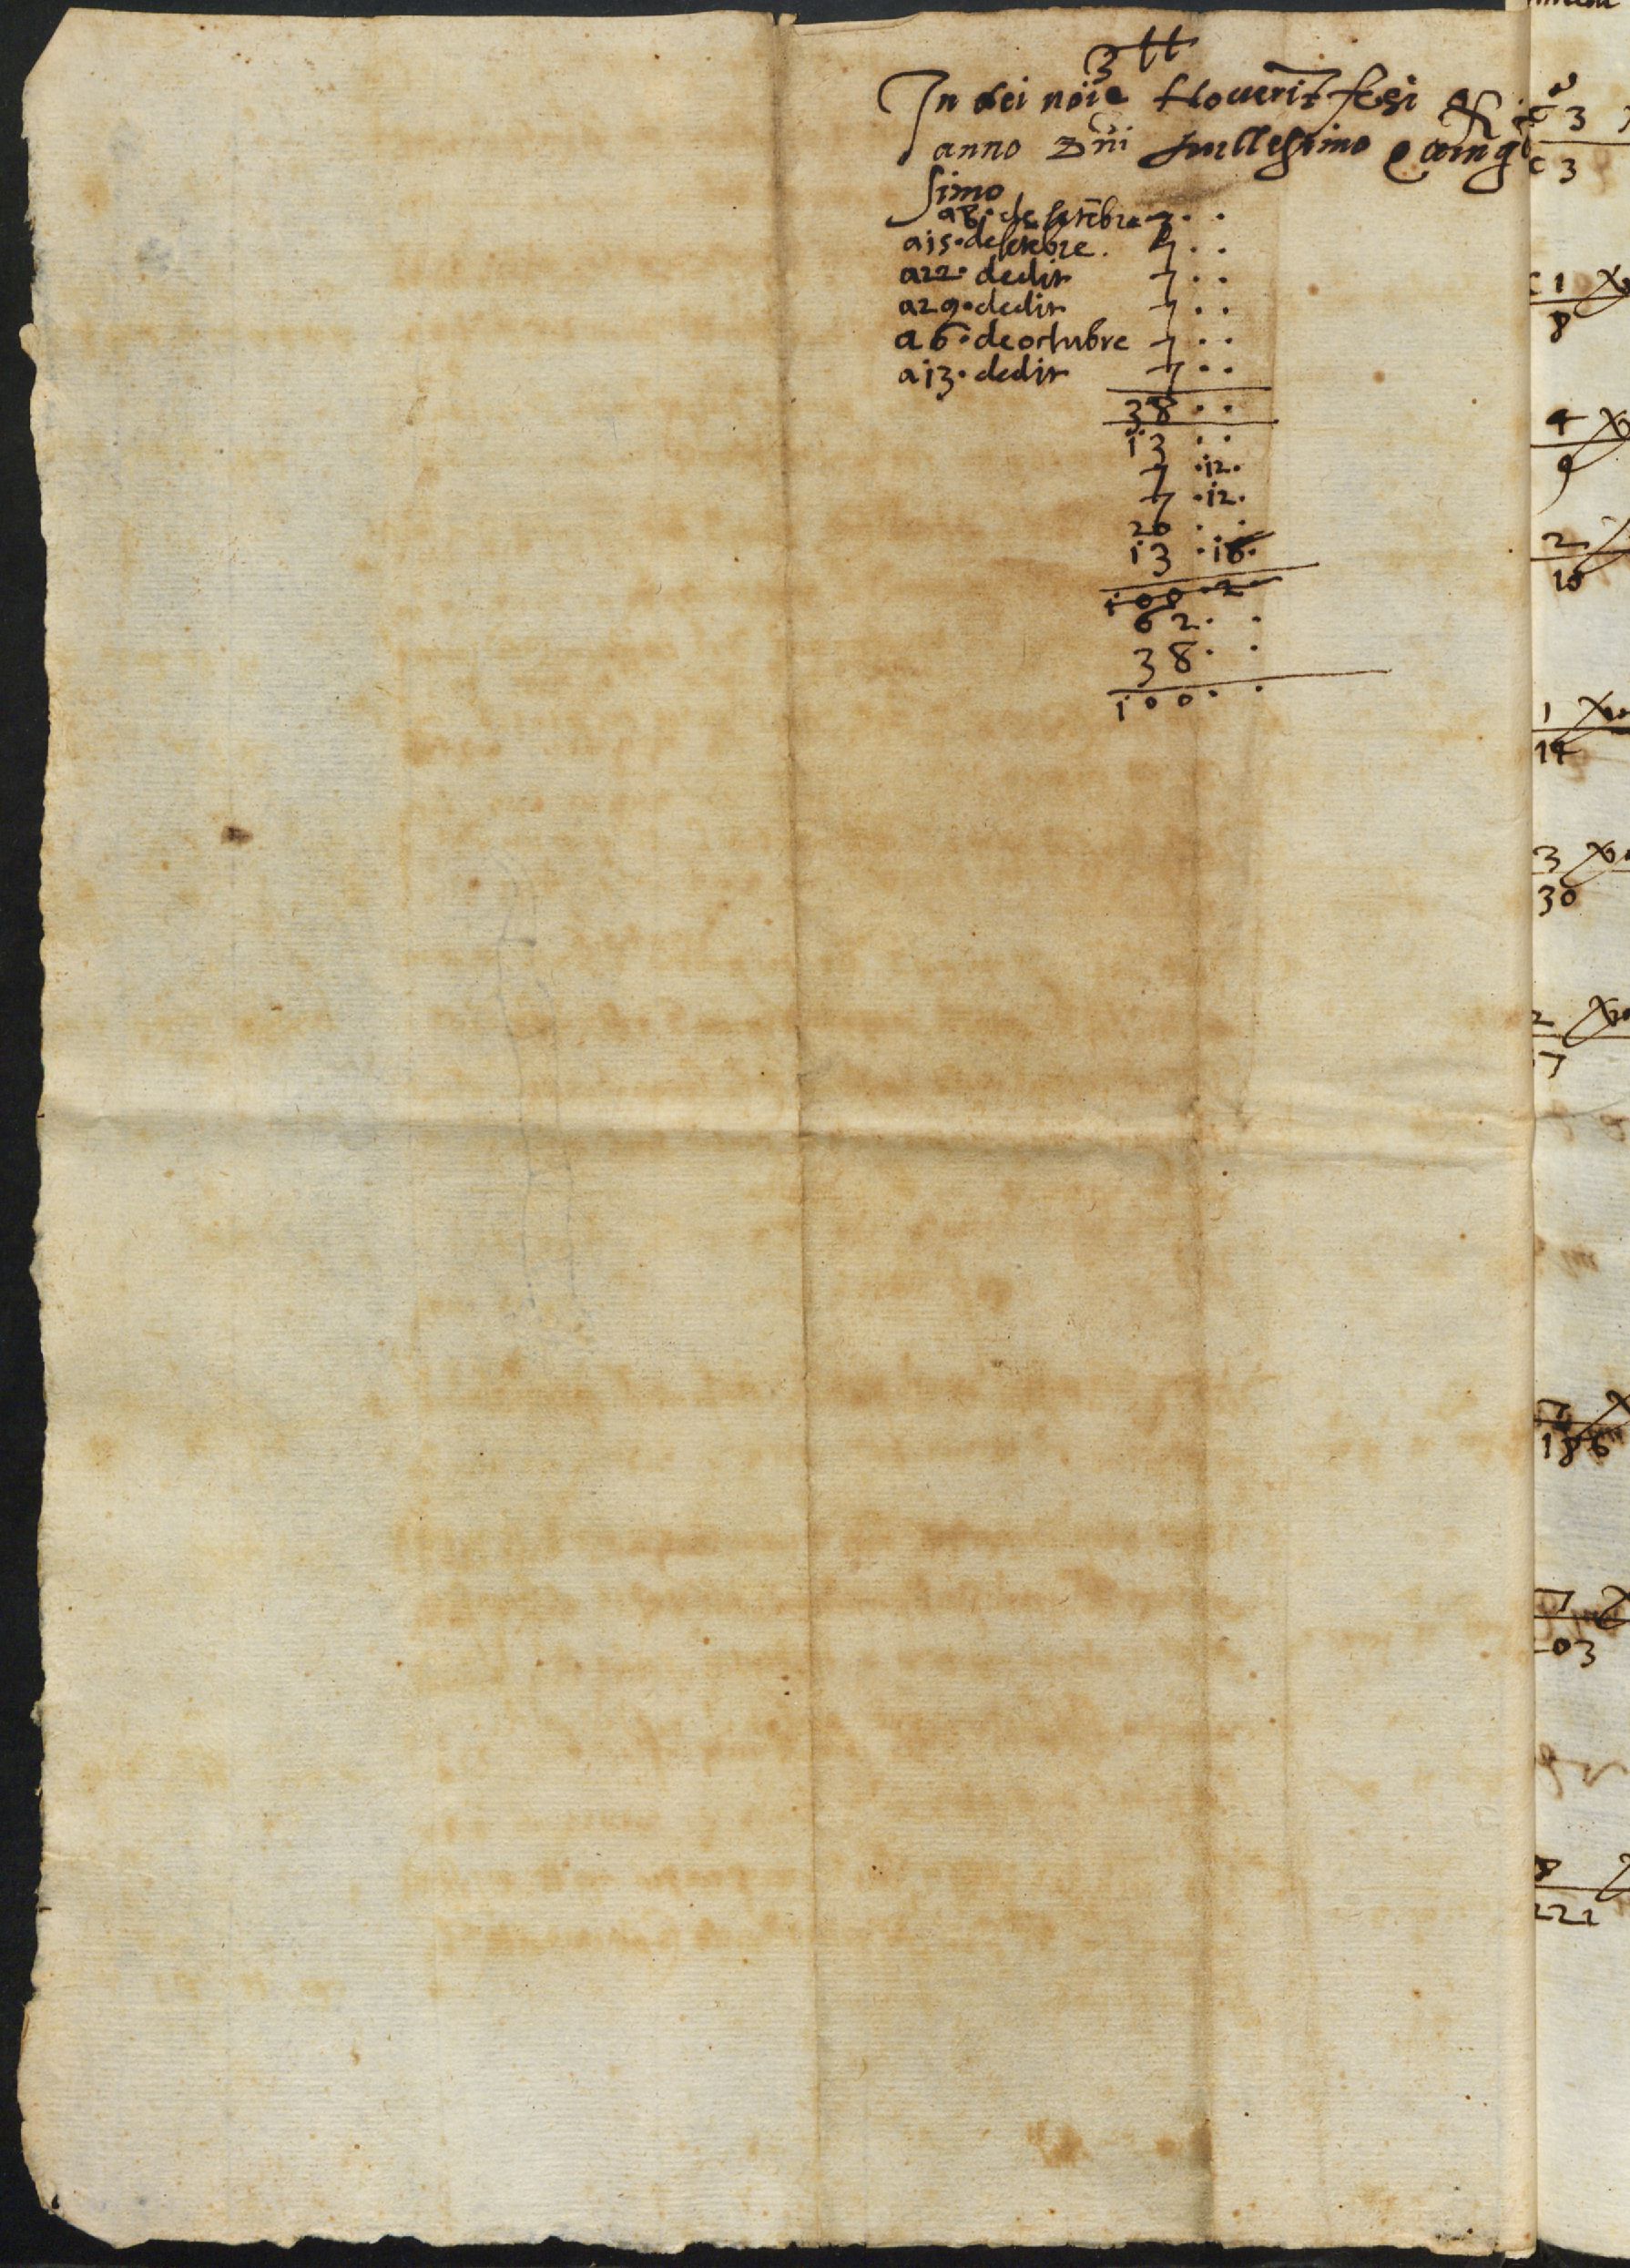 3 tt
In dei noīe Nouerīt fesi
anno Dñi Millessimo Quing
simo
a 8 · de setēbre 7 · ·
a 15 · de setebre · 7 · ·
a 22 · dedit 7 · ·
a 29 · dedit 7 · ·
a 6 · de octubre 7 · ·
a 13 · dedit 7 · ·
38 · ·
13 · ·
7 · 12 ·
7 · 12 ·
20 · ·
13 · 16 ·
100 · 2
62 · ·
38 · ·
100 · ·
3
3
1
8
4
9
2
10
1
14
3
30
2
7
7
186
7
03
8
222